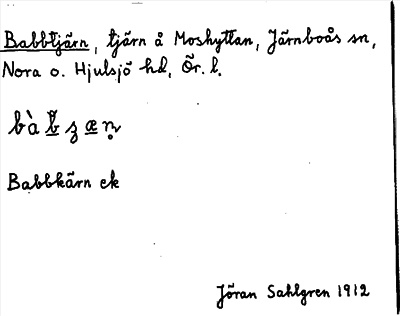 Babbtjärn, tjärn å Moshyttan, Järnboås sn,
Nora o. Hjulsjö hd, Ör. l.
Babbkärn ek
Jöran Sahlgren 1912